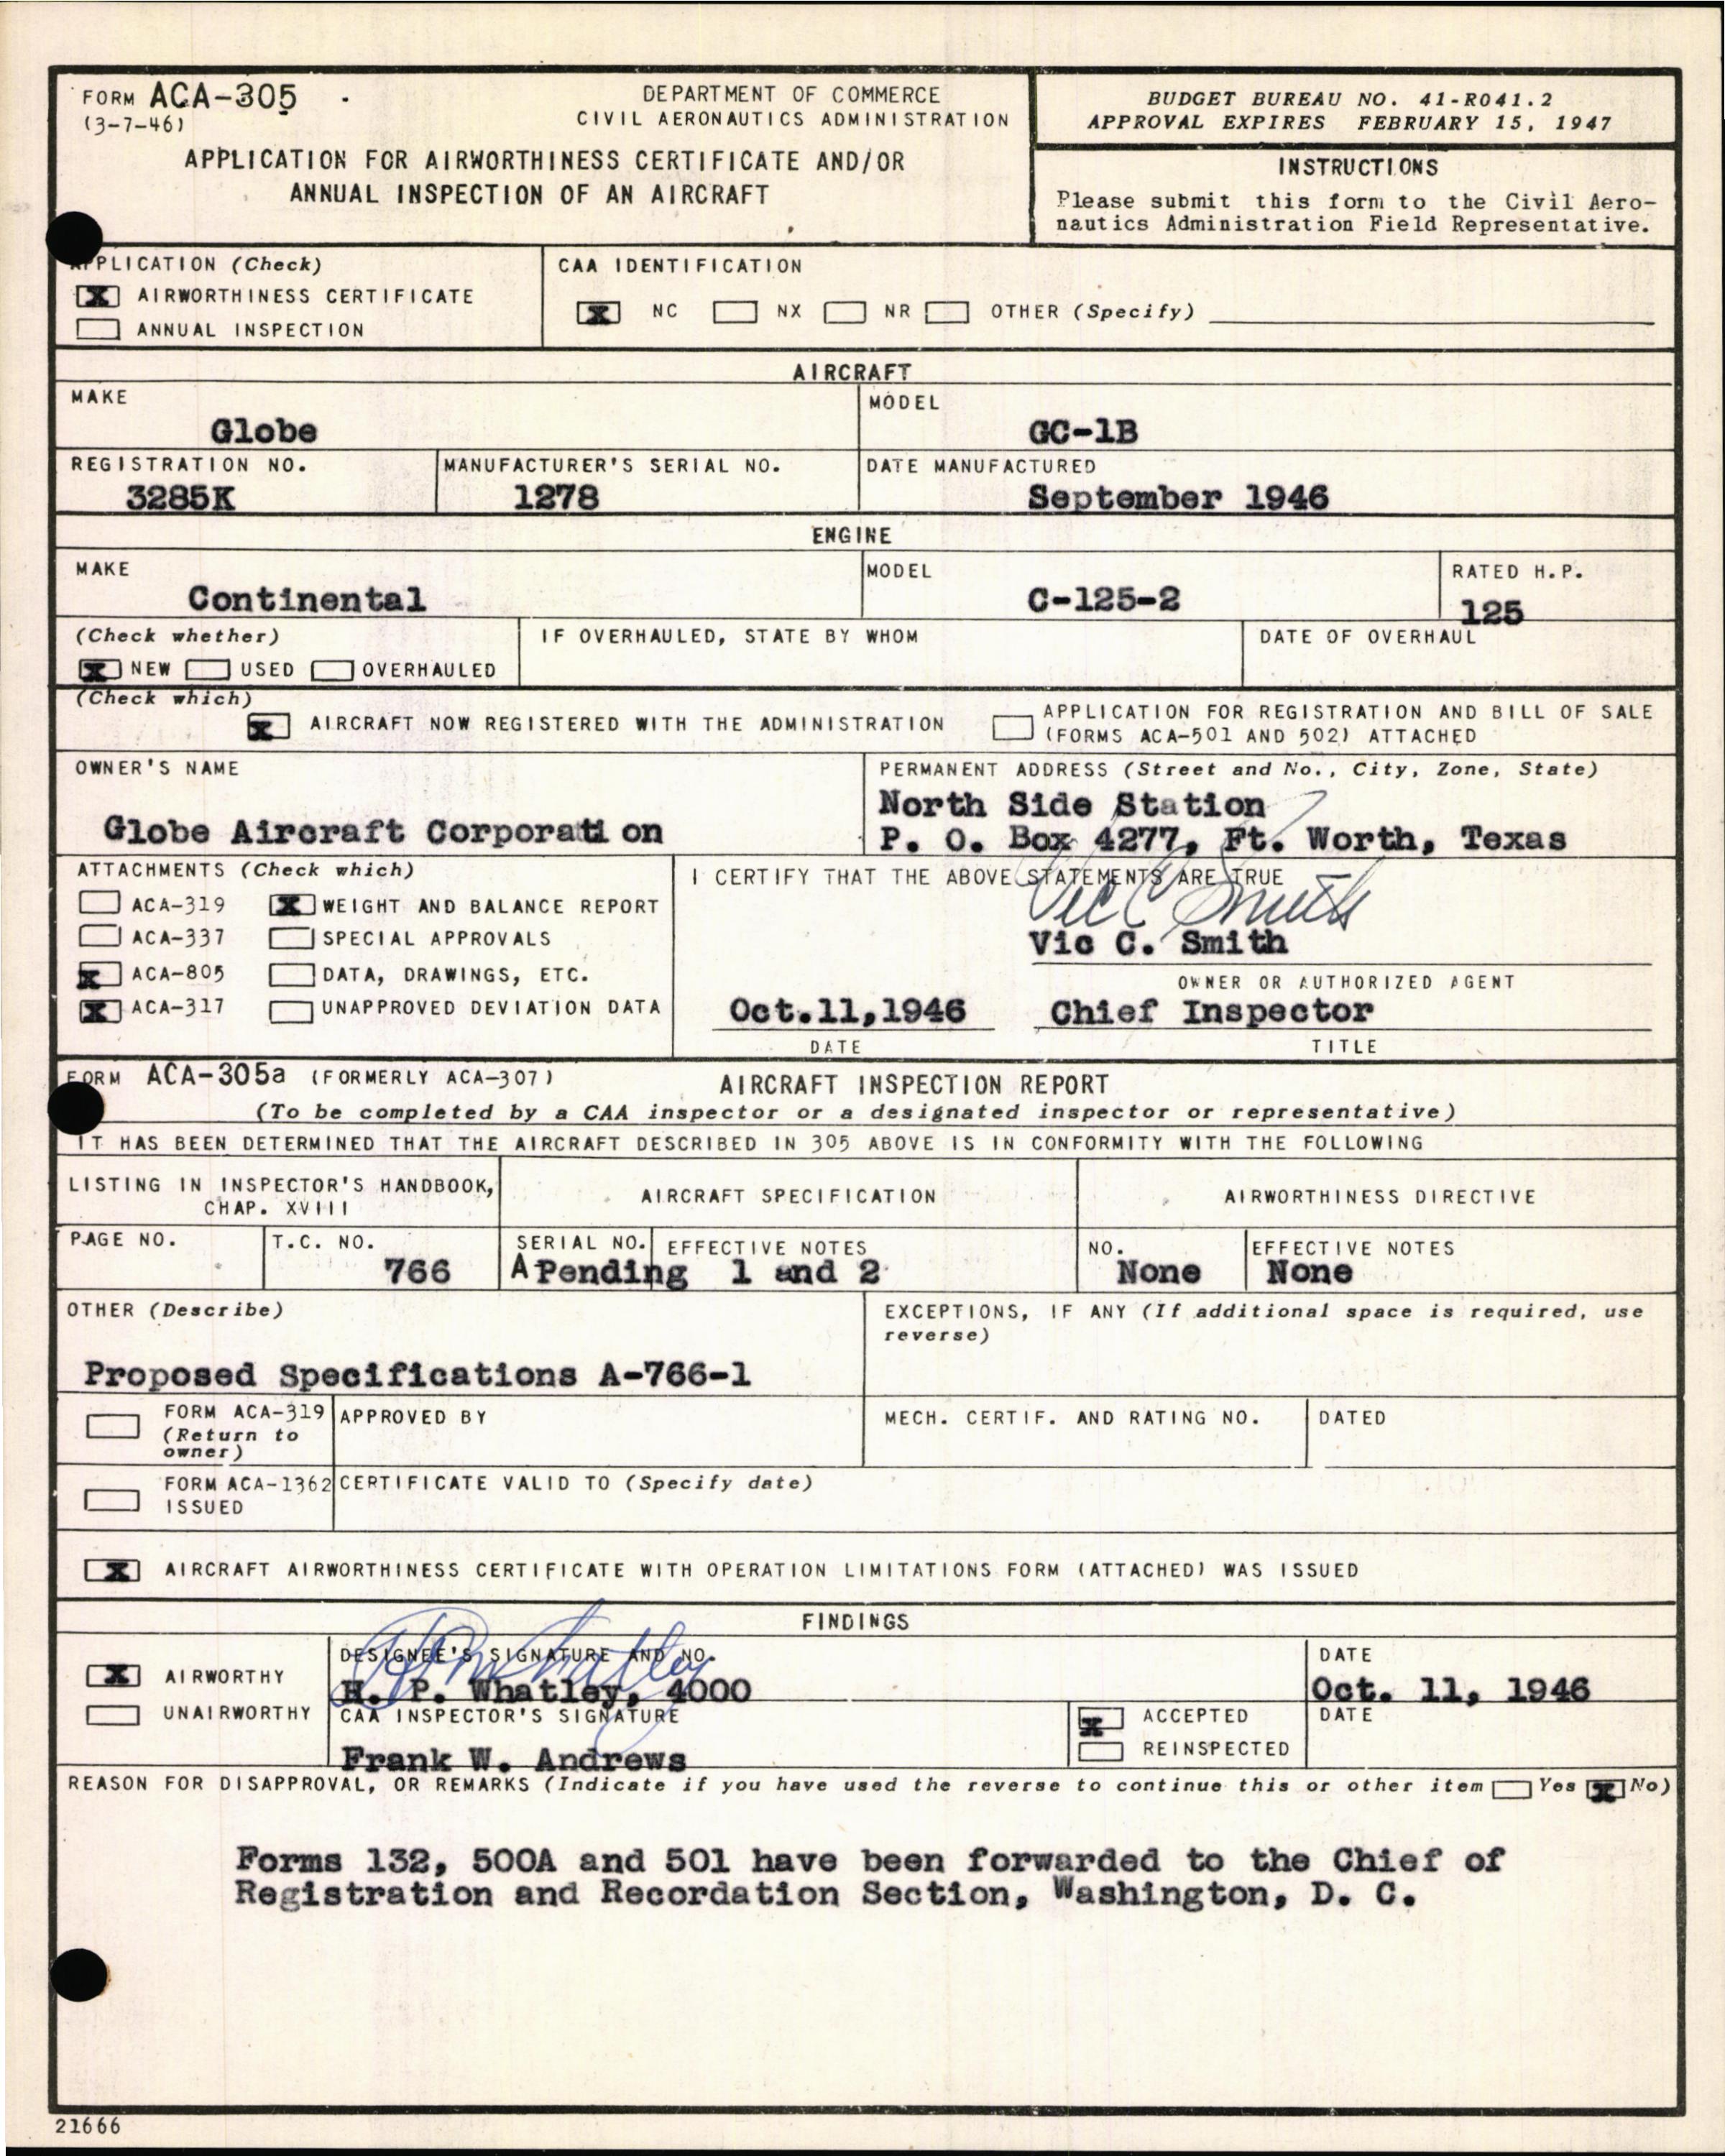 FORM ACA-305
(3-7-46)
DEPARTMENT OF COMMERCE
CIVIL AERONAUTICS ADMINISTRATION
APPLICATION FOR AIRWORTHINESS CERTIFICATE AND/OR
ANNUAL INSPECTION OF AN AIRCRAFT
BUDGET BUREAU NO. 41-R041.2
APPROVAL EXPIRES FEBRUARY 15, 1947
INSTRUCTIONS
Please submit this form to the Civil Aero-
nautics Administration Field Representative.
APPLICATION (Check)
X AIRWORTHINESS CERTIFICATE
ANNUAL INSPECTION
CAA IDENTIFICATION
X NC NX NR OTHER (Specify)
AIRCRAFT
MAKE
Globe
MODEL
GC-1B
REGISTRATION NO.
3285K
MANUFACTURER'S SERIAL NO.
1278
DATE MANUFACTURED
September 1946
ENGINE
MAKE
Continental
MODEL
C-125-2
RATED H.P.
125
(Check whether)
X NEW USED OVERHAULED
IF OVERHAULED, STATE BY WHOM
DATE OF OVERHAUL
(Check which)
X AIRCRAFT NOW REGISTERED WITH THE ADMINISTRATION
APPLICATION FOR REGISTRATION AND BILL OF SALE
(FORMS ACA-501 AND 502) ATTACHED
OWNER'S NAME
Globe Aircraft Corporation
PERMANENT ADDRESS (Street and No., City, Zone, State)
North Side Station
P. O. Box 4277, Ft. Worth, Texas
ATTACHMENTS (Check which)
ACA-319 X WEIGHT AND BALANCE REPORT
ACA-337 SPECIAL APPROVALS
X ACA-805 DATA, DRAWINGS, ETC.
X ACA-317 UNAPPROVED DEVIATION DATA
I CERTIFY THAT THE ABOVE STATEMENTS ARE TRUE
Vic C Smith
Vic C. Smith
OWNER OR AUTHORIZED AGENT
Oct.11,1946 Chief Inspector
DATE TITLE
FORM ACA-305a (FORMERLY ACA-307)
AIRCRAFT INSPECTION REPORT
(To be completed by a CAA inspector or a designated inspector or representative)
IT HAS BEEN DETERMINED THAT THE AIRCRAFT DESCRIBED IN 305 ABOVE IS IN CONFORMITY WITH THE FOLLOWING
LISTING IN INSPECTOR'S HANDBOOK,
CHAP. XVIII
AIRCRAFT SPECIFICATION
AIRWORTHINESS DIRECTIVE
PAGE NO.
T.C. NO.
766
SERIAL NO. EFFECTIVE NOTES
A Pending 1 and 2
NO.
None
EFFECTIVE NOTES
None
OTHER (Describe)
Proposed Specifications A-766-1
EXCEPTIONS, IF ANY (If additional space is required, use
reverse)
FORM ACA-319
(Return to
owner)
APPROVED BY
MECH. CERTIF. AND RATING NO.
DATED
FORM ACA-1362
ISSUED
CERTIFICATE VALID TO (Specify date)
X AIRCRAFT AIRWORTHINESS CERTIFICATE WITH OPERATION LIMITATIONS FORM (ATTACHED) WAS ISSUED
FINDINGS
X AIRWORTHY
UNAIRWORTHY
DESIGNEE'S SIGNATURE AND NO.
HP Whatley
H. P. Whatley, 4000
DATE
Oct. 11, 1946
CAA INSPECTOR'S SIGNATURE
Frank W. Andrews
X ACCEPTED
REINSPECTED
DATE
REASON FOR DISAPPROVAL, OR REMARKS (Indicate if you have used the reverse to continue this or other item Yes X No)
Forms 132, 500A and 501 have been forwarded to the Chief of
Registration and Recordation Section, Washington, D. C.
21666